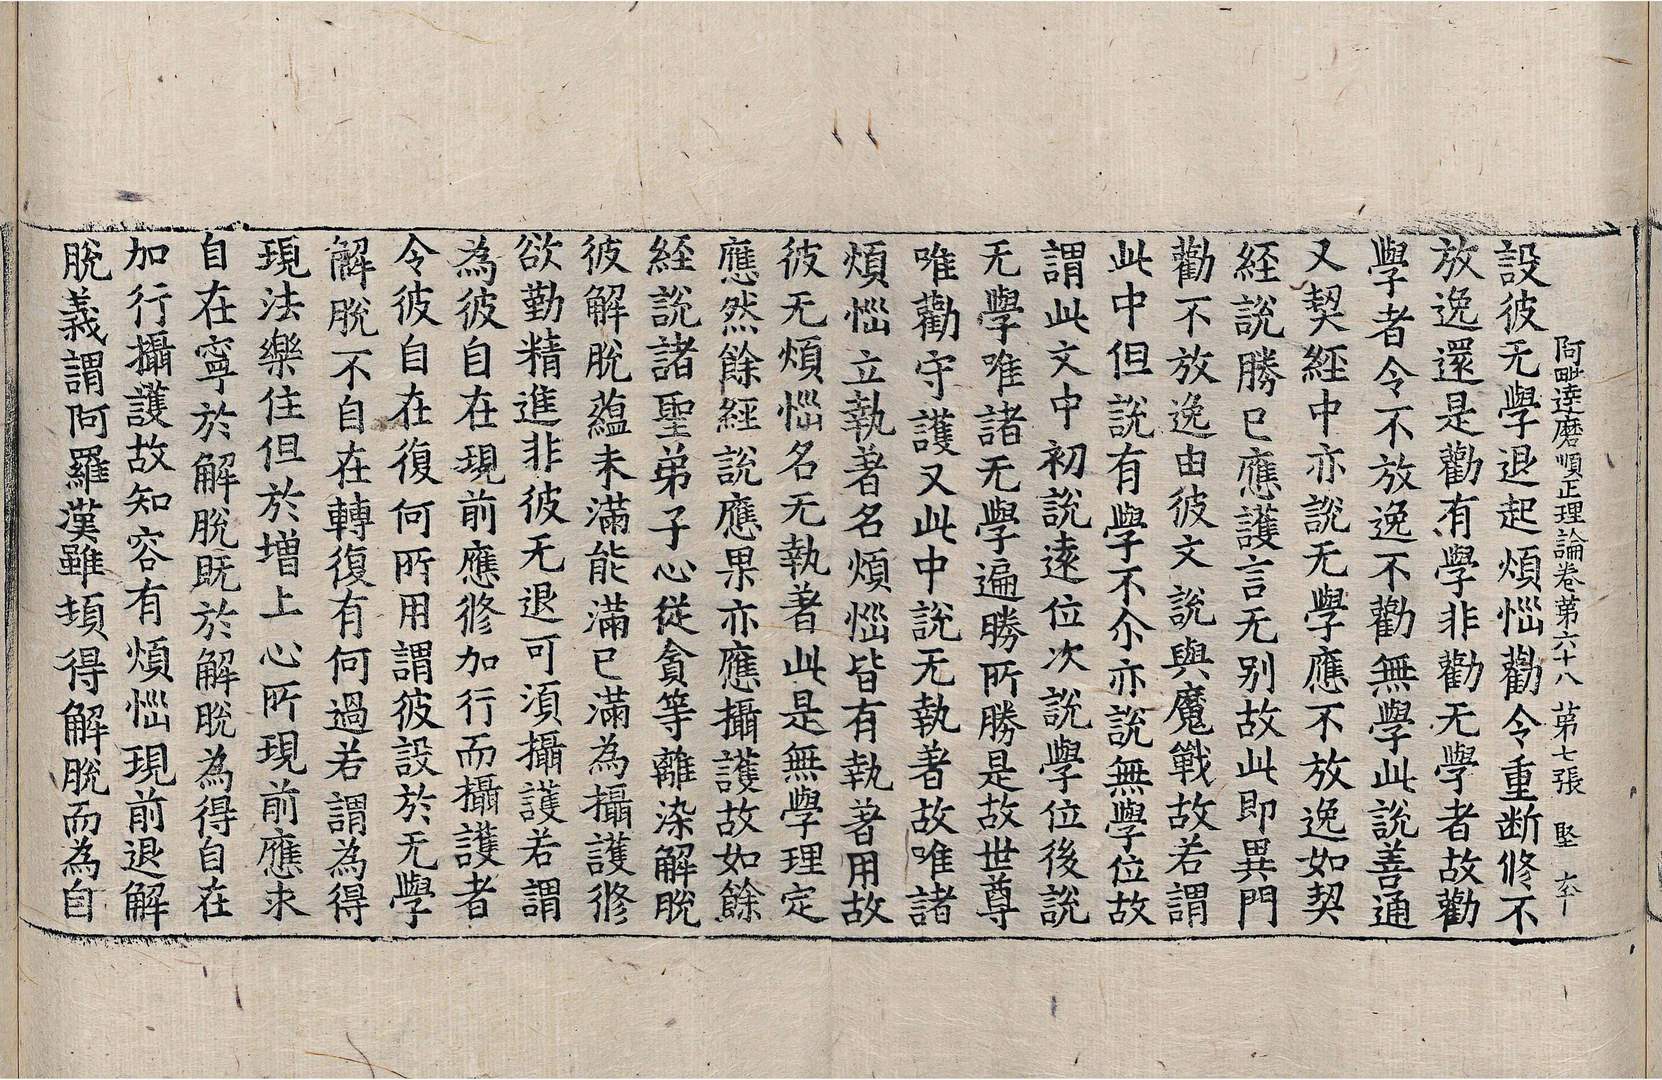 阿毗達磨順正理論卷第六十八 第七張 堅
設彼无學退起煩惱勸令重断修不
放逸還是勸有學非勸无學者故勸
學者令不放逸不勸無學此說善通
又契經中亦說无學應不放逸如契
経說勝已應護言无别故此即異門
勸不放逸由彼文說與魔戰故若謂
此中但說有學不尒亦說無學位故
謂此文中初說遠位次說學位後說
无學唯諸无學遍勝所勝是故世尊
唯勸守護又此中說无執著故唯諸
煩惱立執著名煩惱皆有執著用故
彼无煩惱名无執著此是無學理定
應然餘經說應果亦應攝護故如餘
経說諸聖弟子心從貪等離染解脫
彼解脫蘊未滿能滿已滿為攝護修
欲勤精進非彼无退可須攝護若謂
為彼自在現前應修加行而攝護者
令彼自在復何所用謂彼設於无學
解脫不自在轉復有何過若謂為得
現法樂住但於增上心所現前應求
自在寧於解脫既於解脫為得自在
加行攝護故知容有煩惱現前退解
脫義謂阿羅漢雖頓得解脫而為自